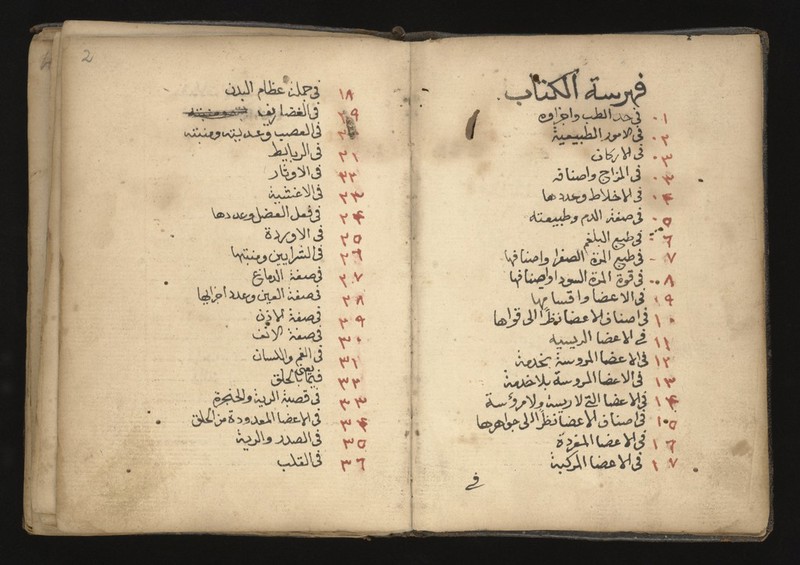 فهرسة الكتاب
٠١ في حد الطب واجزاوه
٠٢ في الامور الطبيعية
٠٣ في الاركان
في المزاج واصنافه
٠٤ في الاخلاط وعددها
٠٥ في صفة الدم وطبيعته
٠٦ في طبع البلغم
٠٧ في طبع المرة الصفرا واصنافها
٠٨ في قوة المرة السودا واصنافها
٠٩ في الاعضا واقسامها
١٠ في اصناف الاعضا نظرا الى قواها
١١ في الاعضا الرييسيه
١٢ في الاعضا المروسة بخدمة
١٣ في الاعضا المروسة بلا خدمة
١٤ في الاعضا التي لا رييسة ولا مروسة
١٥ في اصناف الاعضا نظرا الى جواهرها
١٦ في الاعضا المفردة
١٧ في الاعضا المركبة
في
2
١٨ في جملة عظام البدن
١٩ في الغضاريف
في العصب وعدديته ومنبته
٢١ في الرباط
٢٢ في الاوتار
٢٣ في الاغشية
٢٤ في فعل العضل وعددها
٢٥ في الاوردة
٢٦ في الشرايين ومنبتها
٢٧ في صفة الدماغ
٢٨ في صفة العين وعدد اجزايها
٢٩ في صفة الاذن
٣٠ في صفة الانف
٣١ في الفم واللسان
٣٢ فيما يعني الحلق
٣٣ في قصبة الرية والحنجرة
٣٤ في الاعضا المعدودة من الحلق
٣٥ في الصدر والرية
٣٦ في القلب